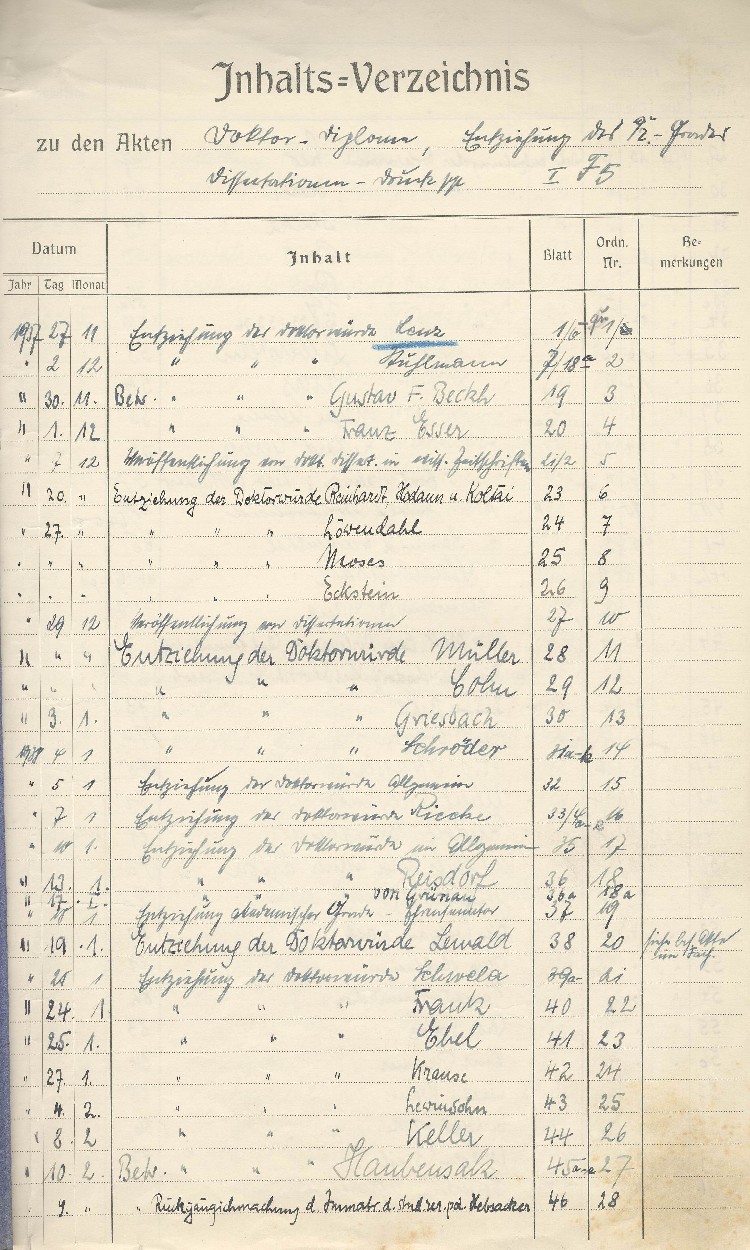 Inhalts=Verzeichnis
zu den Akten Doktor-Diplome, Entziehung des - Grades
Dissertationen - Druck pp I F5
Datum Inhalt Blatt Ordn. Nr. Be- merkungen
Jahr Tag Monat
1937 27 11 Entziehung der Doktorwürde Lenz 1/6 1
" 2 12 " " " Stuhlmann 7/18a 2
" 30. 11. Betr. " " " Gustav F. Beckh 19 3
" 1. 12 " " " Franz Esser 20 4
" 7 12 Veröffentlichung von dokt. dissert. in wiss. Zeitschriften 21/2 5
" 20. " Entziehung der Doktorwürde Reinhardt, Hodann u. Koltai 23 6
" 27. " " " " Löwendahl 24 7
" " " " " " Moses 25 8
" " " " " " Eckstein 26 9
" 29 12 Veröffentlichung von Dissertationen 27 10
" " " Entziehung der Doktorwürde Müller 28 11
" " " " " " Cohn 29 12
" 3. 1. " " " Griesbach 30 13
1938 4 1 " " " Schröder 31a-b 14
" 5 1 Entziehung der Doktorwürde Allgemein 32 15
" 7 1 Entziehung der Doktorwürde Riecke 33/4 16
" 11 1. Entziehung der Doktorwürde im Allgemeinen 35 17
" 13. 1. " " Reisdorf 36 18
" 17. 1. von Grünau 36a 18a
" 11 1 Entziehung akademischer Grade - Ehrensenator 37 19
" 19 1. Entziehung der Doktorwürde Lewald 38 20 siehe bes. Akte
" 25 1 Entziehung der Doktorwürde Schwela 39a- 21
" 24. 1 " " " Frank 40 22
" 25. 1. " " " Ebel 41 23
" 27 1. " " " Krause 42 24
" 4. 2. " " " Lewinsohn 43 25
" 8. 2 " " " Keller 44 26
" 10. 2. Betr. " " " Haubensak 45a-e 27
" 9. " " Rückgängigmachung d. Immatr. d. stud. rer. pol. Hebsacker 46 28